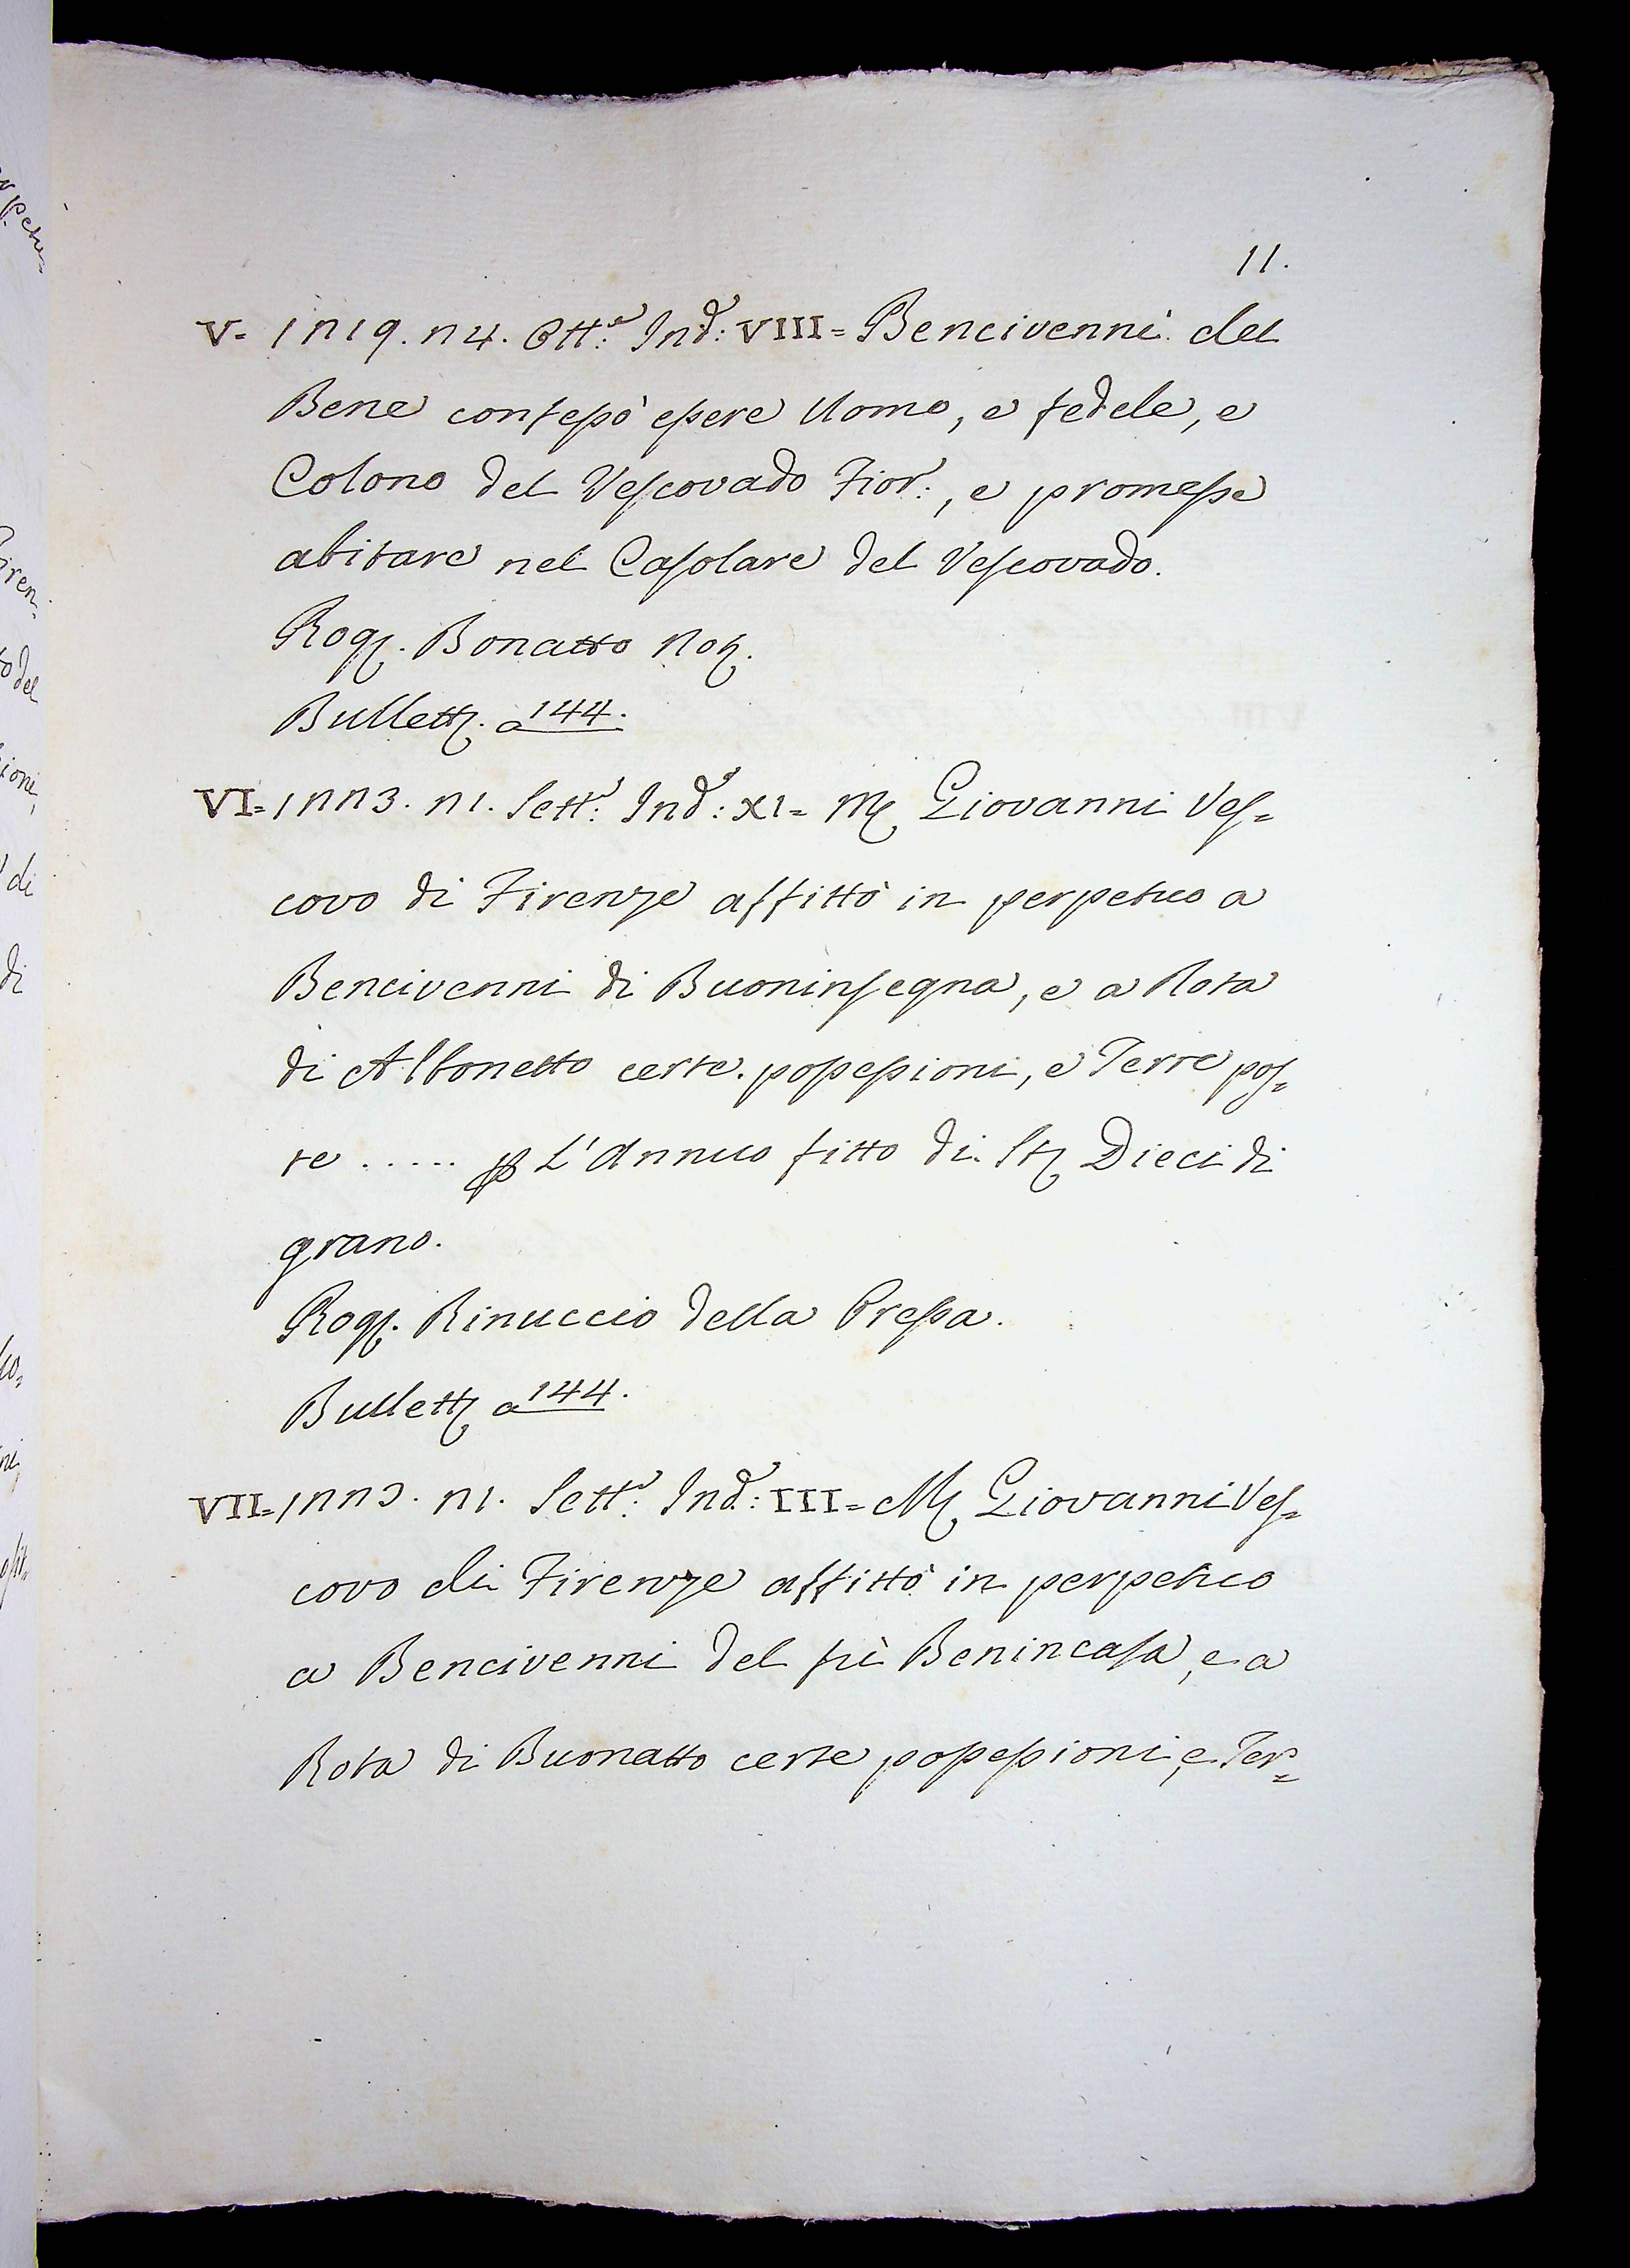 11.
V= 1219. 24. Ott.e Ind.e: VIII= Bencivenni del
Bene confessò essere Uomo, e fedele, e
Colono del Vescovado Fior.e, e promesse
abitare nel Casolare del Vescovado.
Rog. Bonatto Not.
Bullett. a 144.
VI= 1223. 21. Sett.e Ind.e: XI= M. Giovanni Ves=
covo di Firenze affittò in perpetuo a
Bencivenni di Buoninsegna, e a Rota
di Albonetto certe possessioni, e Terre pos=
te ..... p L'Annuo fitto di St. Dieci di
grano.
Rog. Rinuccio della Pressa.
Bullett. a 144.
VII= 1223. 21. Sett.e Ind.e: III= M. Giovanni Ves=
covo di Firenze affittò in perpetuo
a Bencivenni del fù Benincasa, e a
Rota di Buonatto certe possessioni, e Ter=